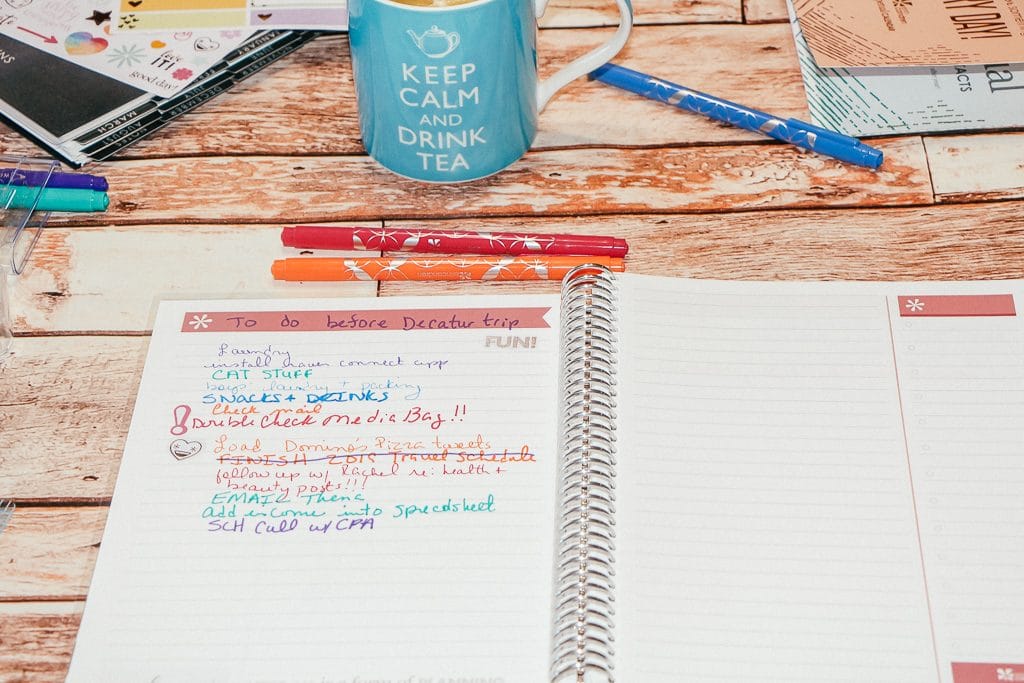 good day!
JANUARY
JULY
DECEMBER
NOTES
AUGUST
MARCH
KEEP
CALM
AND
DRINK
TEA
Y DAY!
ACTS
To do before Decatur trip
FUN!
Laundry
install connect app
CAT STUFF
boys laundry + packing
SNACKS + DRINKS
Check mail
Double Check Media Bag!!
Load Domino's Pizza tweets
FINISH 2019 Travel Schedule
follow up w/ Rachel re: health +
beauty posts!!!
EMAIL Thena
add income into spreadsheet
SCH Call w/ CPA